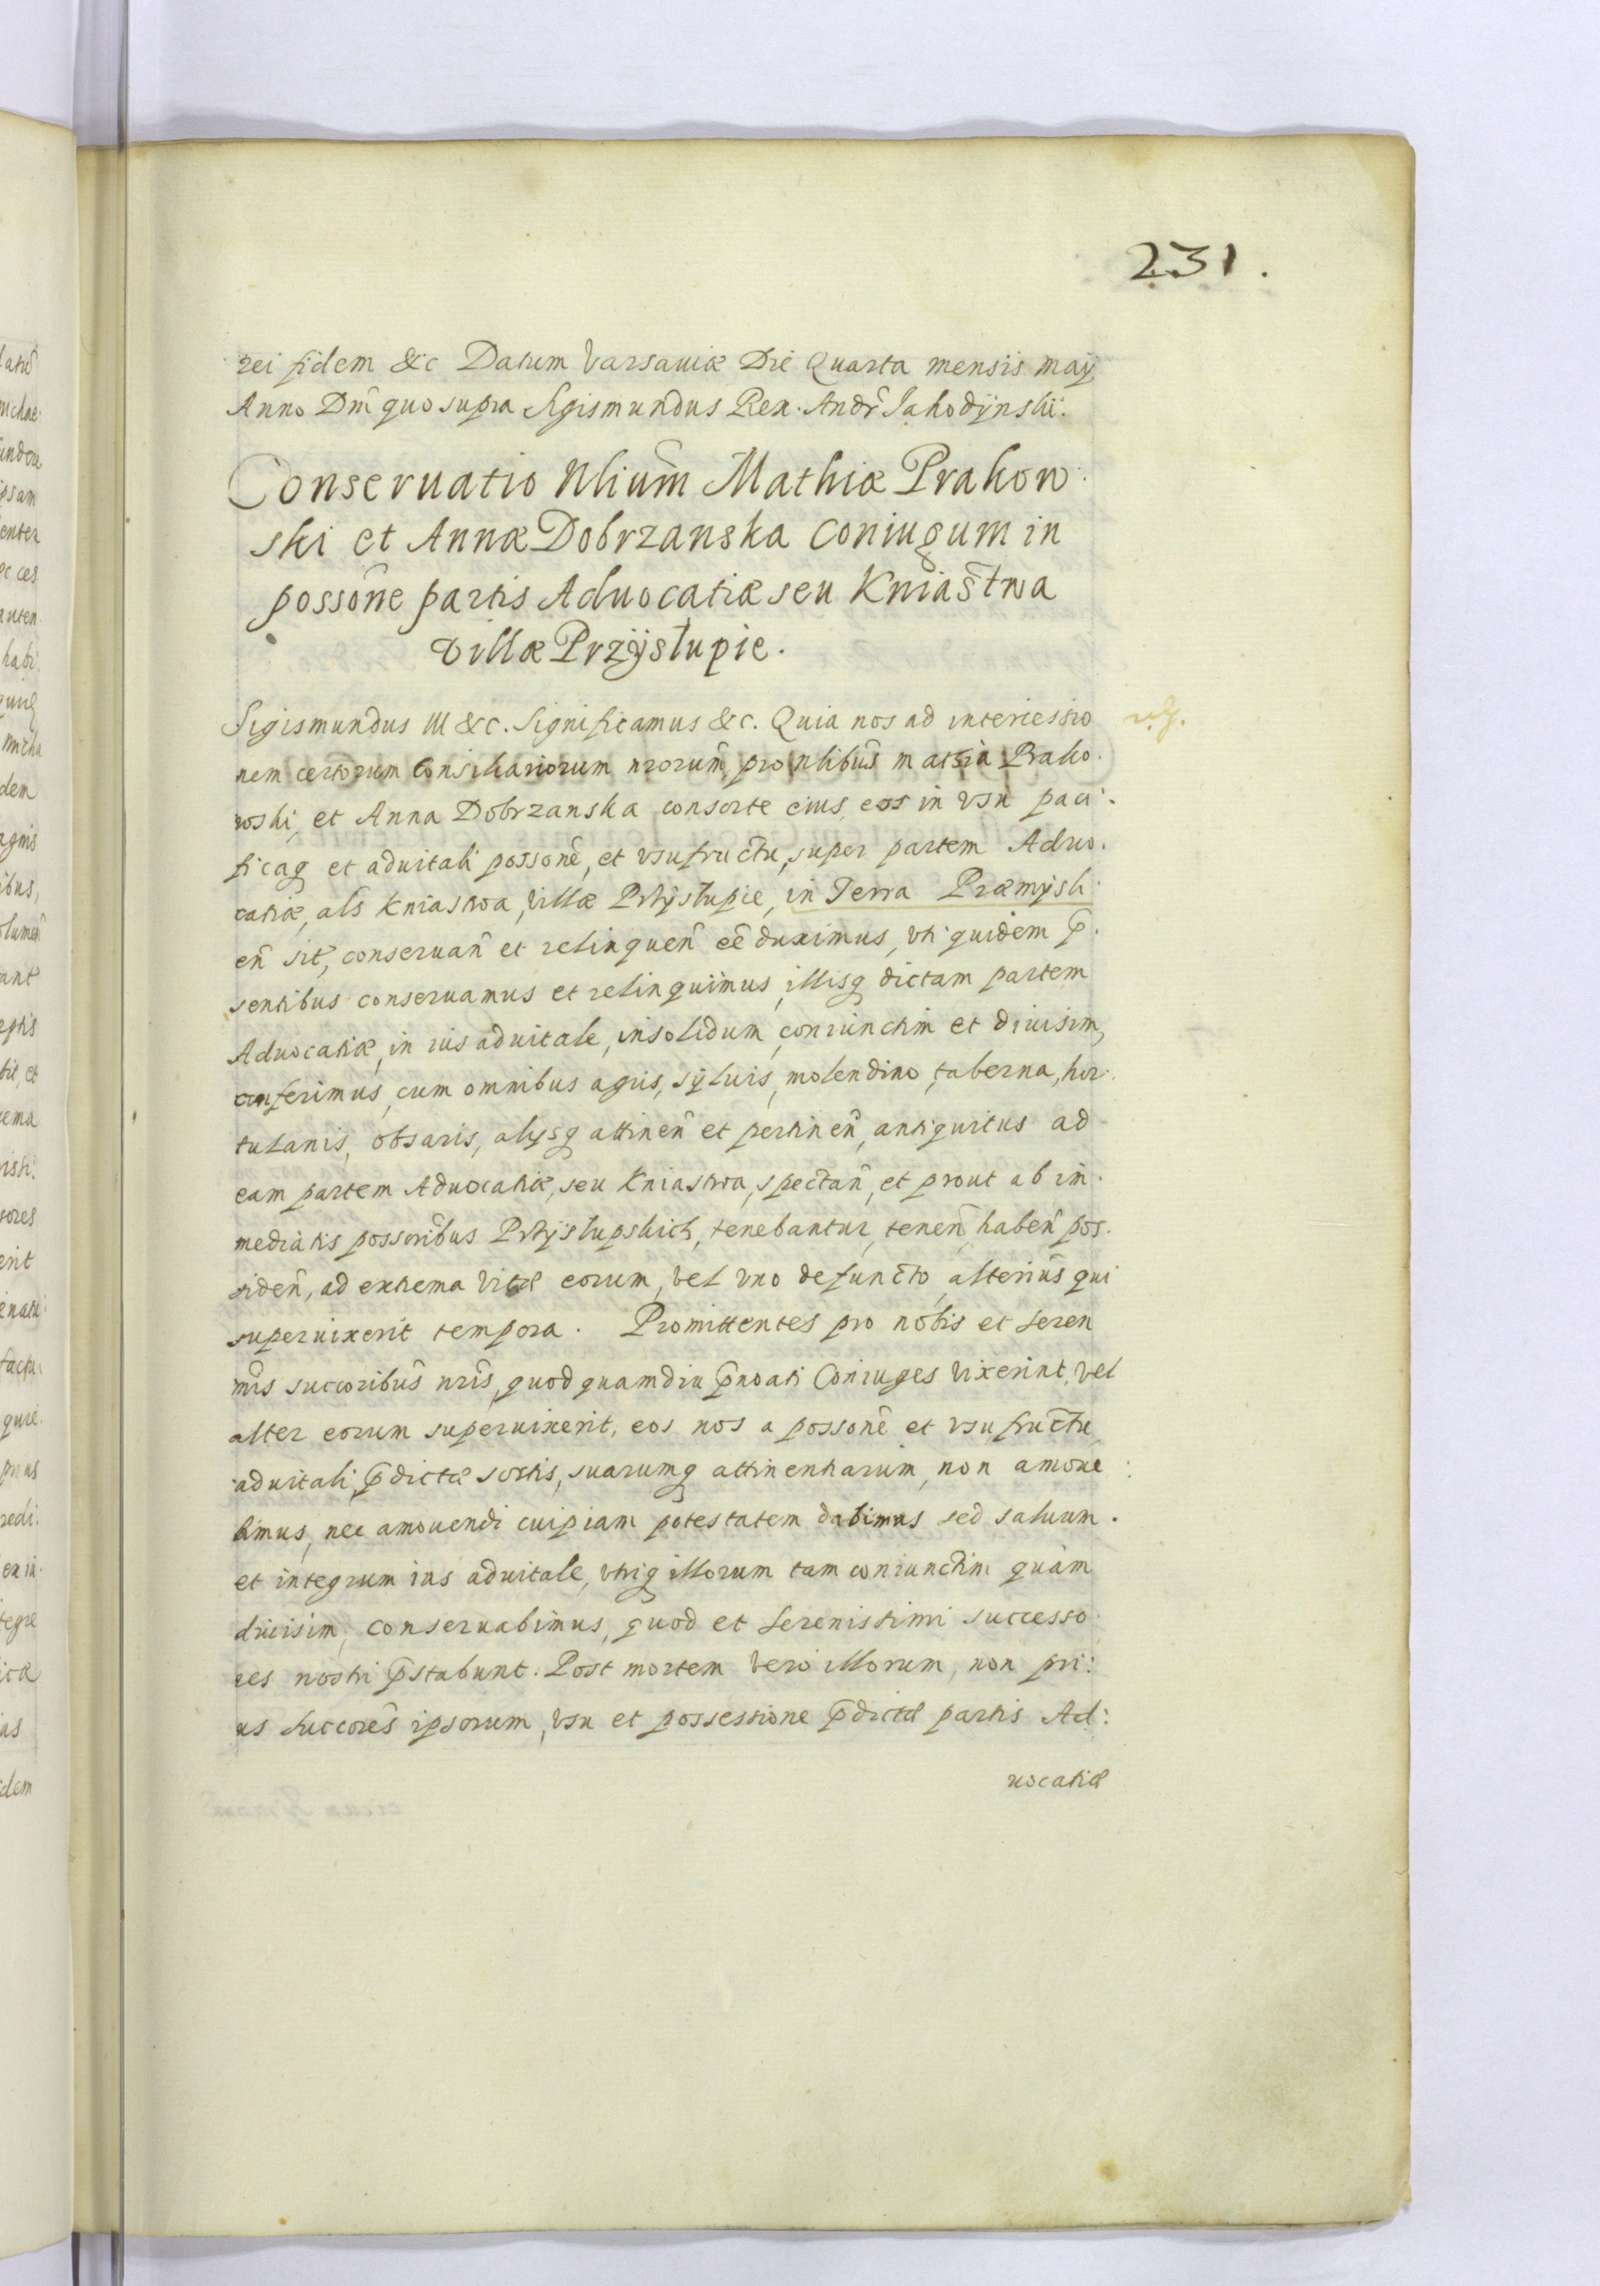 231.
rei fidem &c Datum Varsauiæ Die Quarta mensis maÿ
Anno Dñi quo supra Sigismundus Rex. Andr̃ Jakodÿnski.
Conseruatio Nliũm Mathiæ Prakow:
ski et Annæ Dobrzanska coniugum in
possõne partis Aduocatiæ seu Kniastwa
villæ Przÿstupie.
Sigismundus III &c. Significamus &c. Quia nos ad interiessio
nem certorum Consiliariorum nrorum̃, pro nlibũs matsia Prako.
wski, et Anna Dobrzanska consorte eius, eos in vsu paci.
ficaq et aduitali possonẽ, et vsufructu, super partem Aduo.
catiæ, als̃ Kniastwa, villæ Przÿstupie, in Terra Præmÿsli:
eñ sit, conseruañ et relinqueñ eẽ duximus, vti quidem p̃.
sentibus conseruamus et relinquimus, illisq dictam partem
Aduocatiæ, in ius aduitale, insolidum, coniunctim et diuisim,
conferimus, cum omnibus agris, sÿluis, molendino, taberna, hor.
tulanis, obsaris, alysq attineñ et pertineñ, antiquitus ad
eam partem Aduocatiæ, seu Kniastwa, spectañ, et prout ab im.
mediatis possoribũs Przÿstupskich, tenebantur, teneñ, habeñ pos.
sideñ, ad extrema vitæ eorum, vel vno defuncto, alterius qui
superuixerit tempora. Promittentes pro nobis et Seren
mis̃ succoribũs nris̃, quod quamdiu p̃noati Coniuges vixerint, vel
alter eorum superuixerit, eos nos a possonẽ et vsufructu
aduitali, p̃dictæ sortis, suarumq attinentiarum, non amoue:
bimus, nec amouendi cuipiam potestatem dabimus sed saluum.
et integrum ius aduitale, vtriq illorum tam coniunctim quàm
diuisim, conseruabimus, quod et Serenissimi successo
res nostri p̃stabunt. Post mortem vero illorum, non pri:
us succorẽs ipsorum, vsu et possessione p̃dictæ partis Ad:
uocatiæ